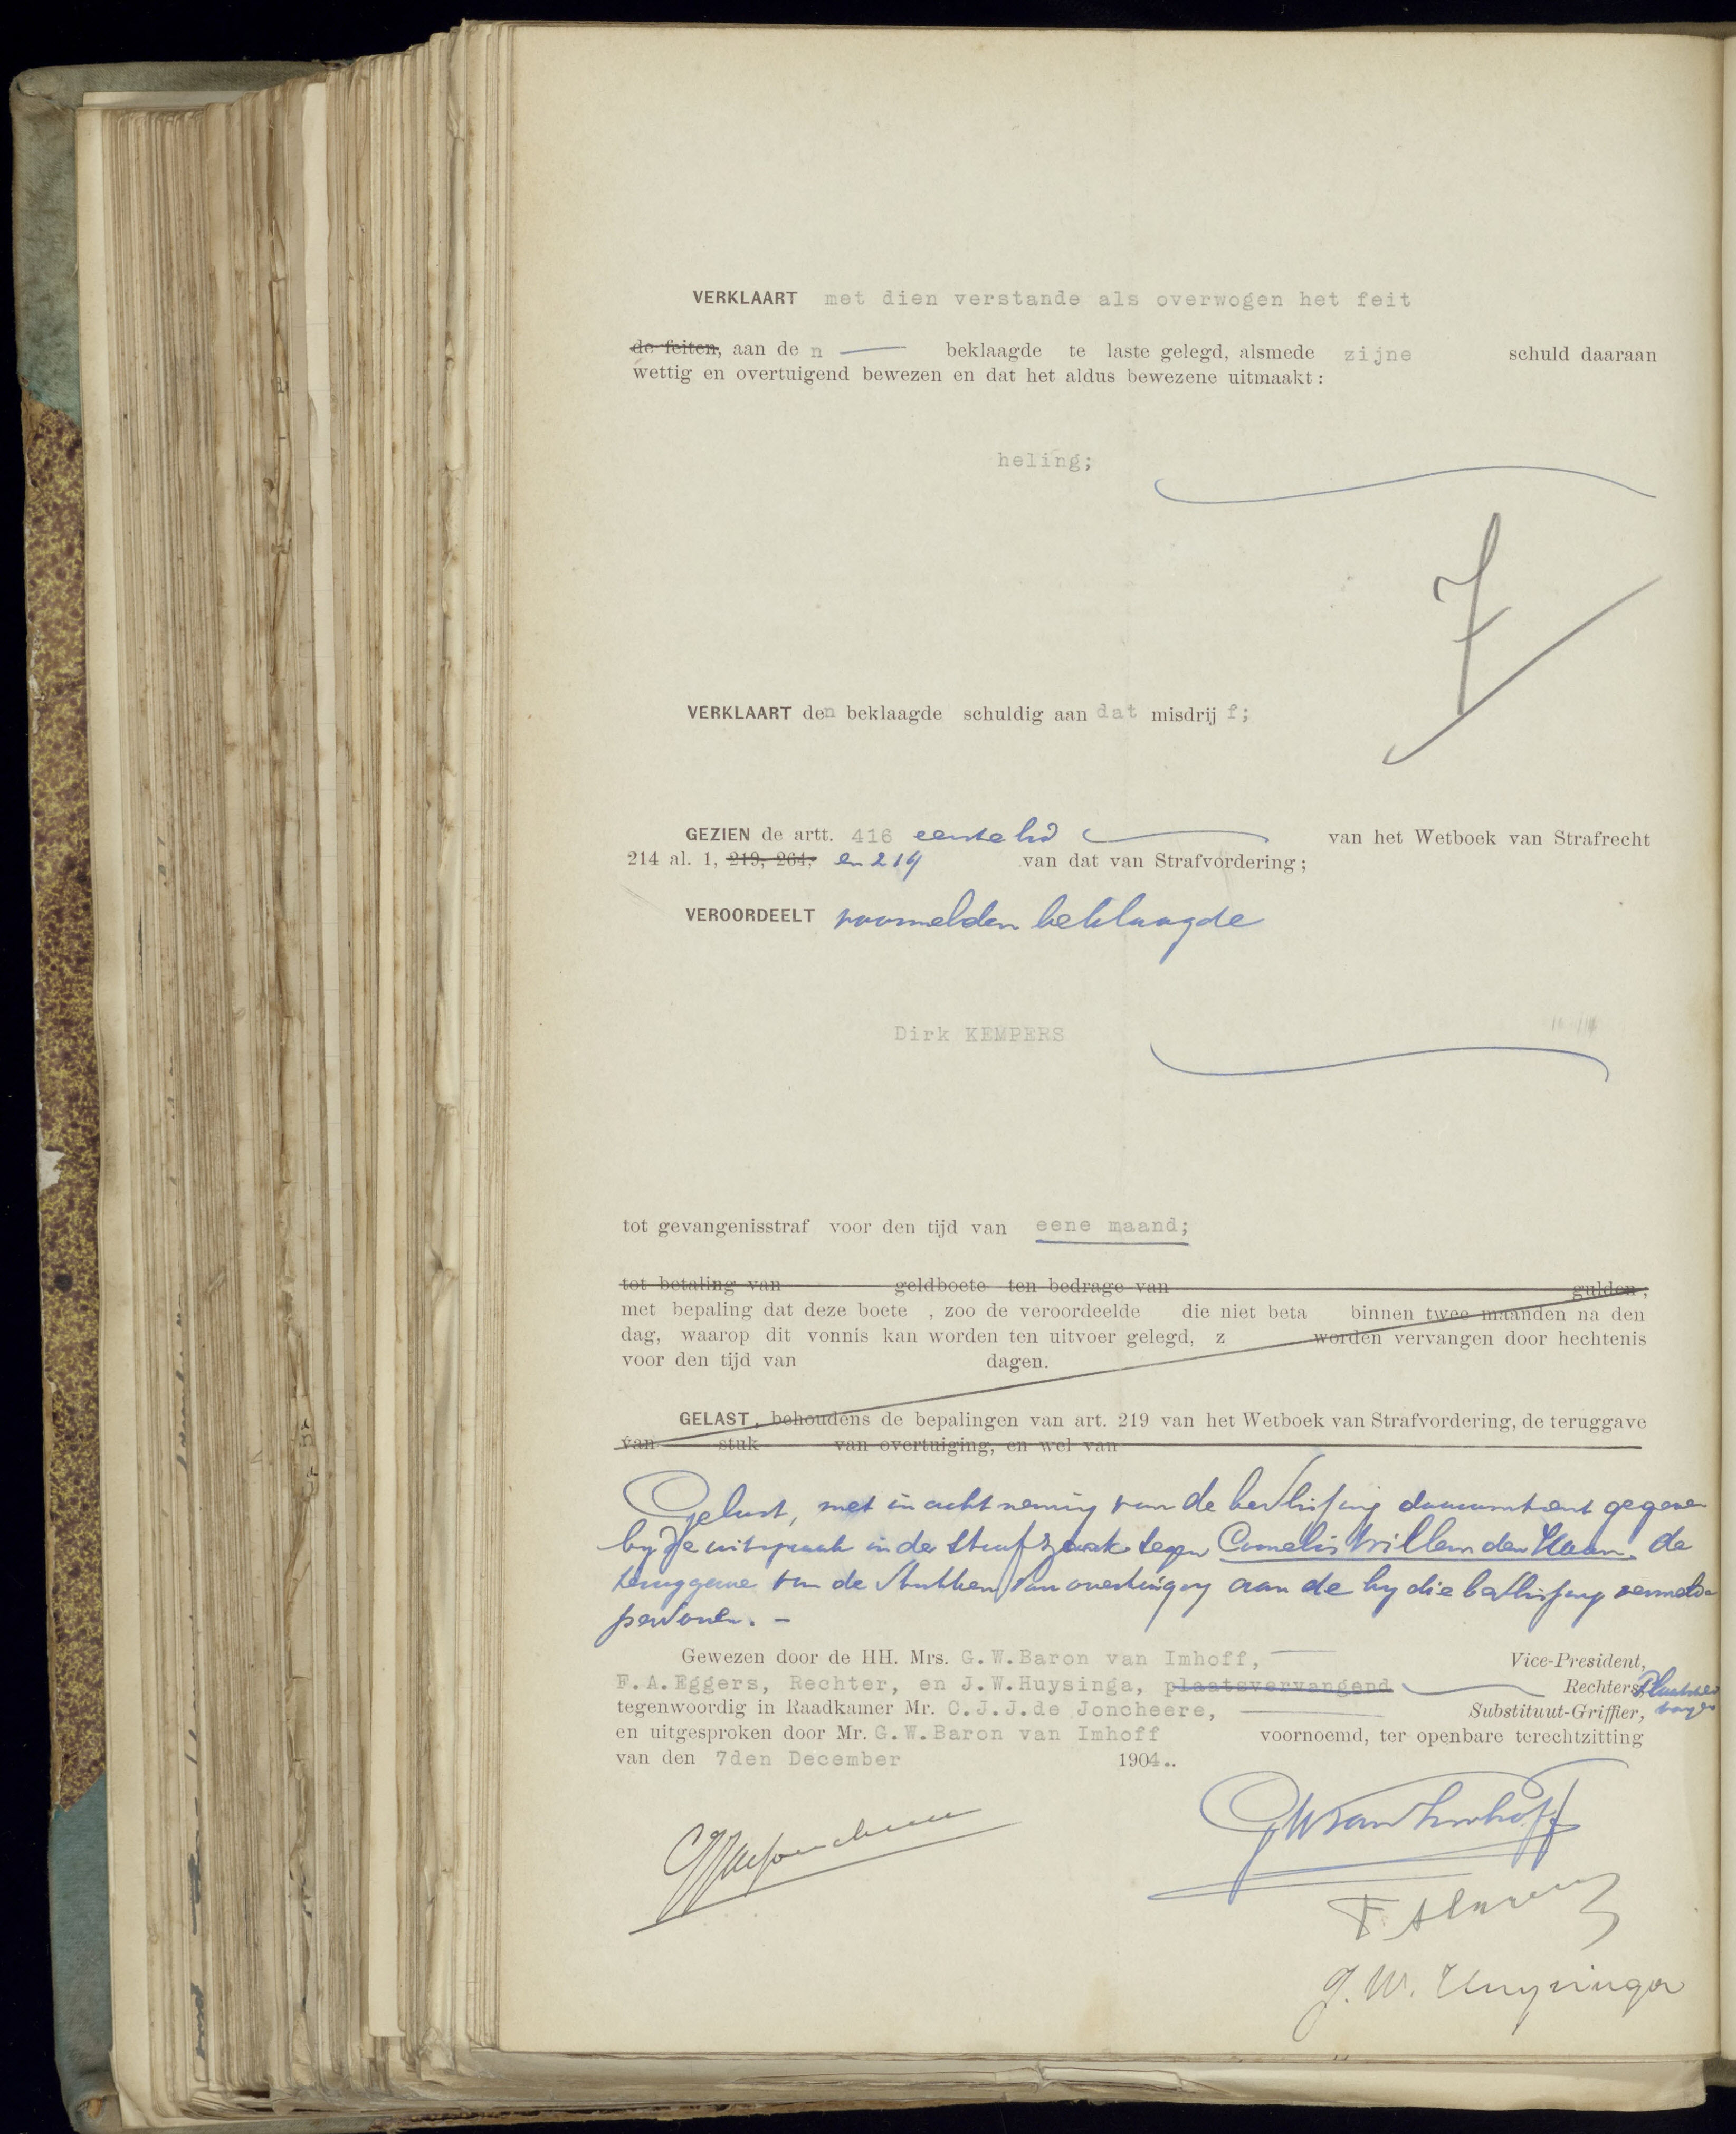 VERKLAART met dien verstande als overwogen het feit
de feiten, aan de n beklaagde te laste gelegd, alsmede zijne schuld daaraan
wettig en overtuigend bewezen en dat het aldus bewezene uitmaakt:
heling;
VERKLAART den beklaagde schuldig aan dat misdrij f;
GEZIEN de artt. 416 eerste lid van het Wetboek van Strafrecht
214 al. 1, 219, 264, en 219 van dat van Strafvordering;
VEROORDEELT voormelden beklaagde
Dirk KEMPERS
tot gevangenisstraf voor den tijd van eene maand;
tot betaling van geldboete ten bedrage van gulden,
met bepaling dat deze boete , zoo de veroordeelde die niet beta binnen twee maanden na den
dag, waarop dit vonnis kan worden ten uitvoer gelegd, z worden vervangen door hechtenis
voor den tijd van dagen.
GELAST, behoudens de bepalingen van art. 219 van het Wetboek van Strafvordering, de teruggave
van stuk van overtuiging, en wel van
Gelast, met inachtneming van de beslissing daaromtrent gegeven
bij de uitspraak in de strafzaak tegen Cornelis Willem den Haan, de
teruggave van de stukken van overtuiging aan de bij die beslissing vermelde
personen. -
Gewezen door de HH. Mrs. G.W.Baron van Imhoff, Vice-President,
F.A.Eggers, Rechter, en J.W.Huysinga, plaatsvervangend Rechters, Plaatsver
tegenwoordig in Raadkamer Mr. C.J.J.de Joncheere, Substituut-Griffier, vanger
en uitgesproken door Mr. G.W.Baron van Imhoff voornoemd, ter openbare terechtzitting
van den 7den December 1904..
GWvanImhoff
CJJdeJoncheere
J. W. Huysinga